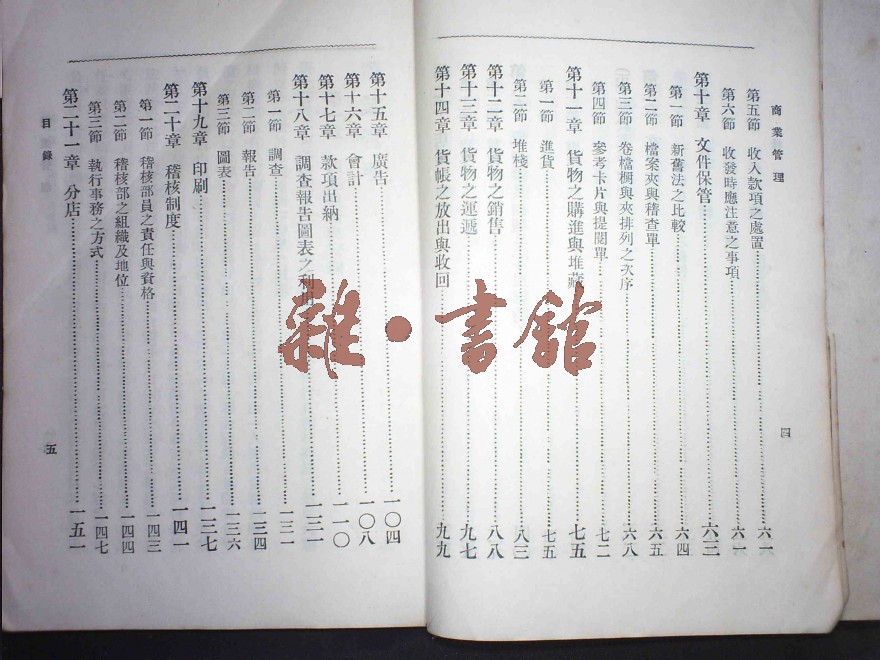 商業管理
第五節 收入款項之處置 六一
第六節 收發時應注意之事項 六一
第十章 文件保管 六三
第一節 新舊法之比較 六四
第二節 檔案夾與稽查單 六五
第三節 卷檔櫊與夾排列之次序 六八
第四節 參考卡片與提閱單 七二
第十一章 貨物之購進與堆藏 七五
第一節 進貨 七五
第二節 堆棧 八三
第十二章 貨物之銷售 八八
第十三章 貨物之運遞 九七
第十四章 貨帳之放出與收回 九九
四
第十五章 廣告 一〇四
第十六章 會計 一〇八
第十七章 款項出納 一一〇
第十八章 調查報告圖表之利用 一三一
第一節 調查 一三二
第二節 報告 一三四
第三節 圖表 一三六
第十九章 印刷 一三七
第二十章 稽核制度 一四一
第一節 稽核部員之責任與資格 一四三
第二節 稽核部之組織及地位 一四四
第三節 執行事務之方式 一四七
第二十一章 分店 一五一
目錄
五
雜·書館